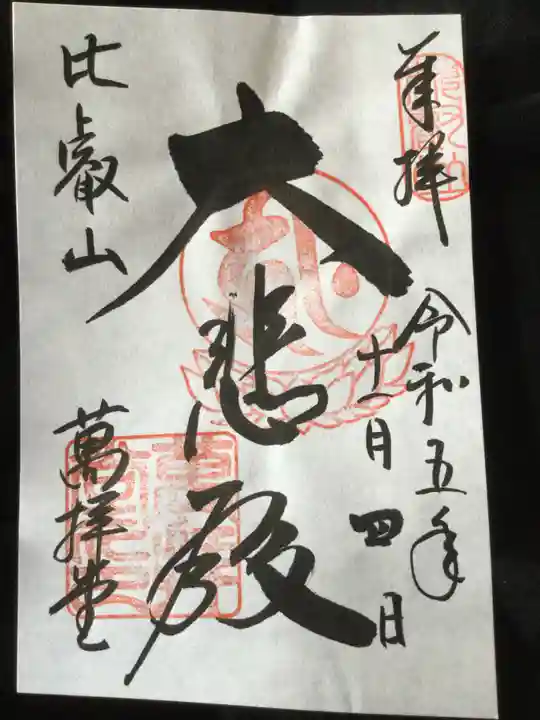 奉拝
令和五年
十一月四日
大悲殿
比叡山
萬拝堂